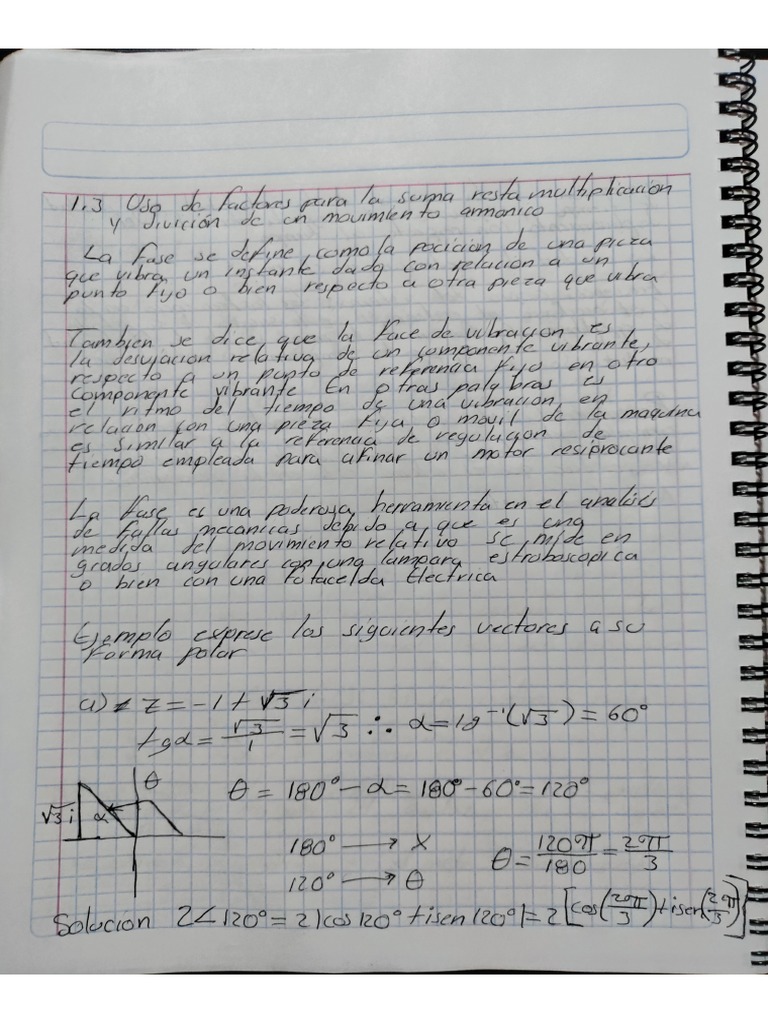 1.3 Uso de factores para la suma resta multiplicacion
y división de un movimiento armonico
La fase se define como la pocicion de una pieza
que vibra un instante dado con relacion a un
punto fijo o bien respecto a otra pieza que vibra
Tambien se dice que la face de vibracion es
la desviacion relativa de un componente vibrante,
respecto a un punto de referencia fijo en otro
componente vibrante En otras palabras es
el ritmo del tiempo de una vibracion en
relacion con una pieza fija o movil de la maquina
es similar a la referencia de regulacion de
tiempo empleada para afinar un motor resiprocante
La fase es una poderosa herramienta en el analisis
de fallas mecanicas debido a que es una
medida del movimiento relativo se mide en
grados angulares con una lampara estroboscopica
o bien con una fotacelda Electrica
Ejemplo exprese los siguientes vectores a su
forma polar
a) z = -1 + √3 i
tgα = √3/1 = √3 ∴ α = tg⁻¹(√3) = 60°
θ
√3 i
α
θ = 180° - α = 180° - 60° = 120°
180° → X
120° → θ
θ = 120π/180 = 2π/3
Solucion 2∠120° = 2|cos120° + isen120°| = 2[cos(2π/3) + isen(2π/3)]